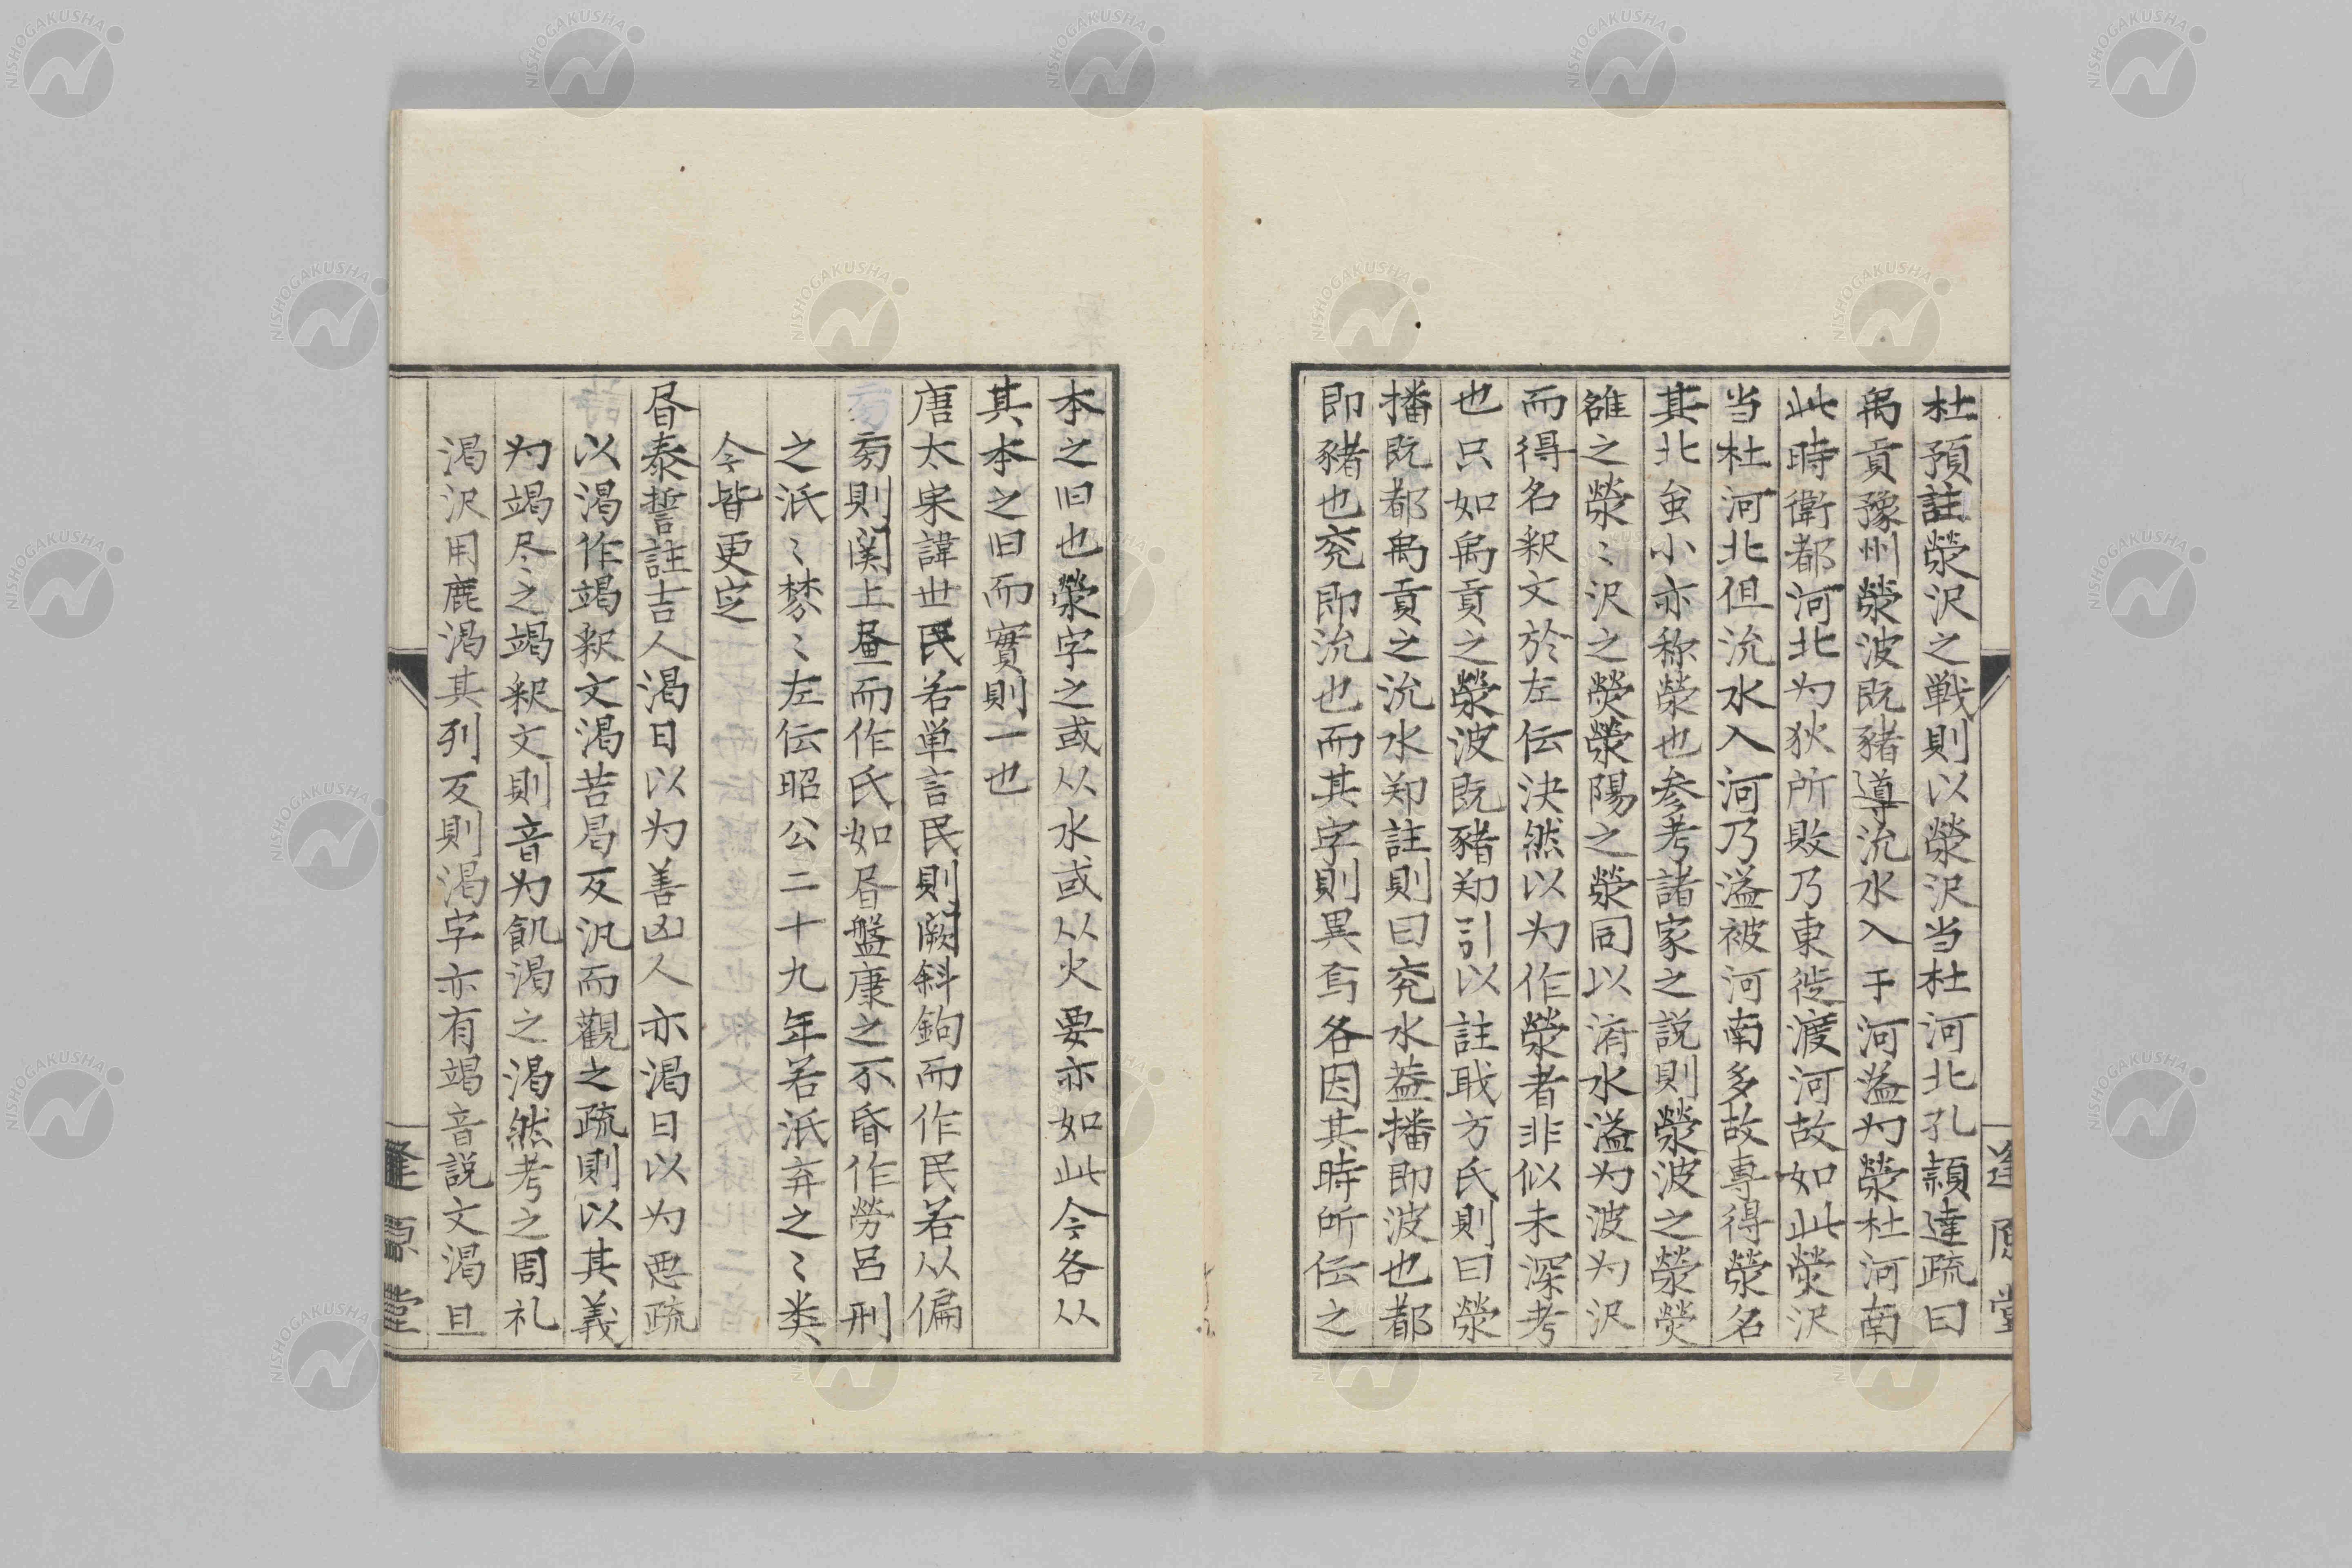 杜預註滎沢之戦則以滎沢当杜河北孔頴達疏曰
禹貢豫州滎波既豬導沇水入于河溢为滎杜河南
此時衛都河北为狄所敗乃東徙渡河故如此滎沢
当杜河北但沇水入河乃溢被河南多故専得滎名
其北虽小亦称滎也参考諸家之説則滎波之滎熒
雒之滎〻沢之熒滎陽之滎同以済水溢为波为沢
而得名釈文於左伝決然以为作滎者非似未深考
也只如禹貢之滎波既豬郑引以註戝方氏則曰滎
播既都禹貢之沇水郑註則曰兖水葢播即波也都
即豬也兖即沇也而其字則異烏各因其時所伝之
本之旧也滎字之或从水或从火要亦如此今各从
其本之旧而實則一也
唐太宋諱世民若単言民則闕斜鉤而作民若从偏
旁則関上畫而作氏如昬盤康之不昏作勞呂刑
之泯〻棼〻左伝昭公二十九年若泯弃之〻类
今皆更定
昬泰誓註吉人渇日以为善凶人亦渇日以为悪疏
以渇作竭釈文渇苦曷反汎而觀之疏則以其義
为竭尽之竭釈文則音为飢渇之渇然考之周礼
渇沢用鹿渇其列反則渇字亦有竭音説文渇旦
逢原堂